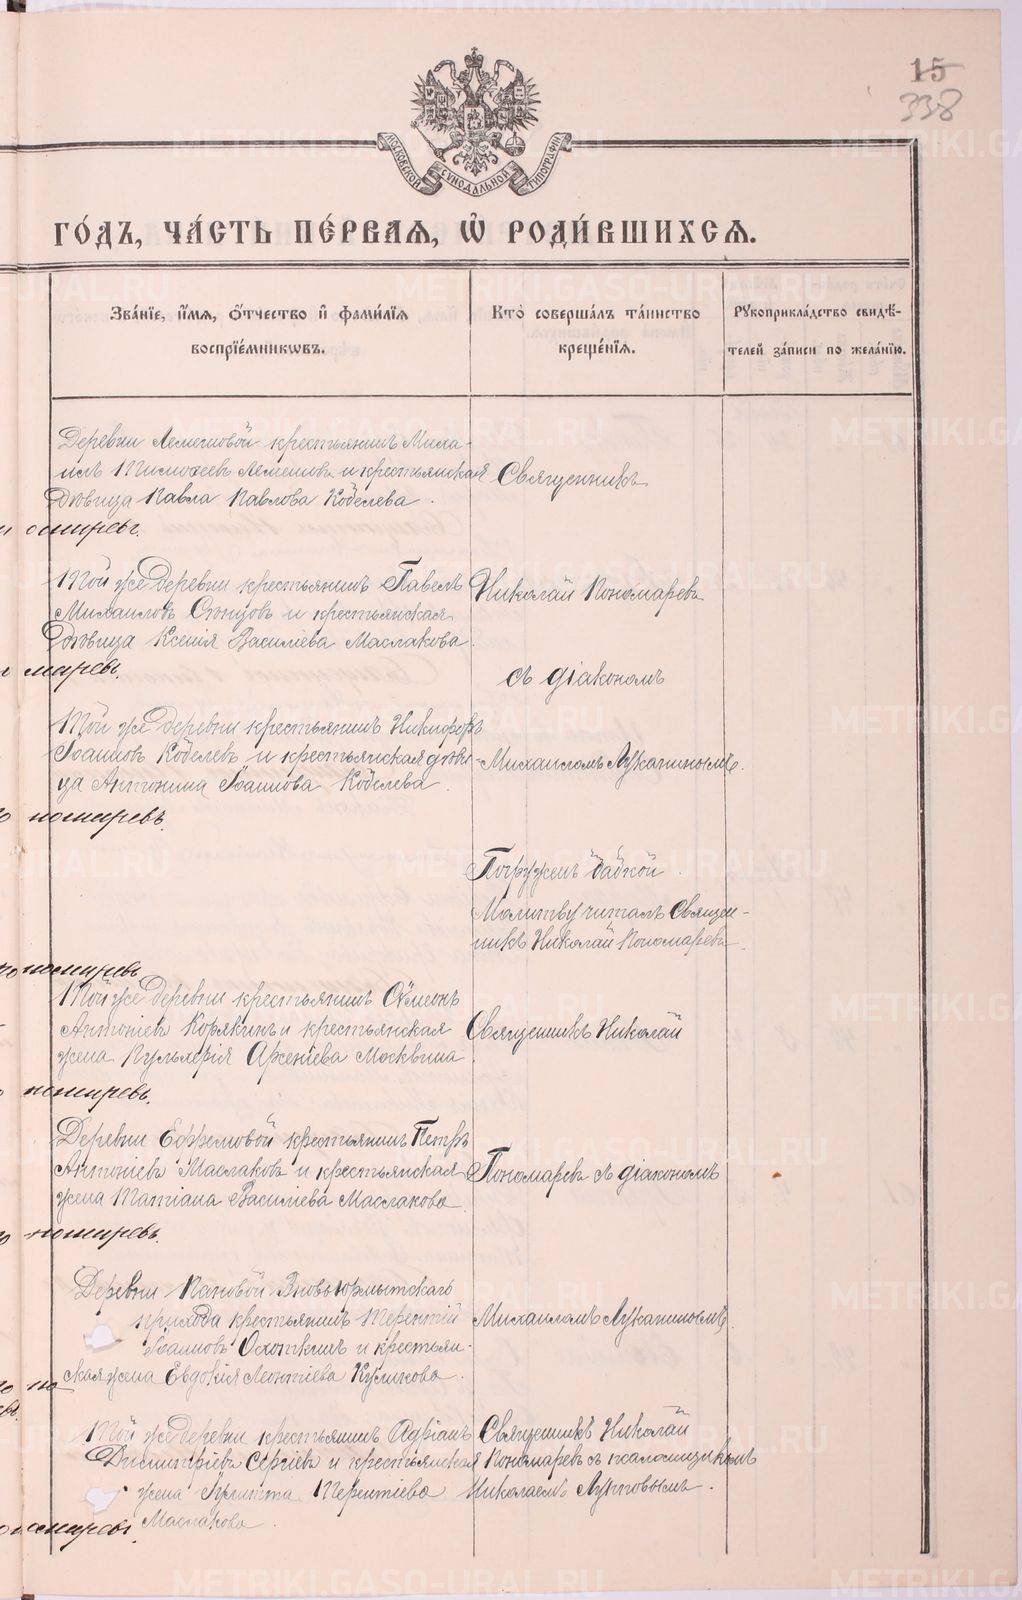 15
338
МОСКОВСКОЙ СѴНОДАЛЬНОЙ ТИПОГРАФІИ
ГО́ДЪ, ЧА́СТЬ ПЕ́РВАЯ, Ѡ҆ РОДИ́ВШИХСЯ.
Зва́нїе, и҆́мя, ѻ҆́тчество и҆ фами́лїя
воспрїе́мникѡвъ.
Кто̀ соверша́лъ та́инство
креще́нїя.
Рꙋкоприкла́дство свидѣ́-
телей за́писи по жела́нїю.
Деревни Лемешовой крестьянинъ Миха-
илъ Тимоѳеевъ Лемешовъ и крестьянская
дѣвица Павла Павлова Кобелева.
Священникъ
Той же деревни крестьянинъ Павелъ
Михаиловъ и крестьянская
дѣвица Ксенія Василіева Маслакова.
Николай Пономаревъ
съ діакономъ
Той же деревни крестьянинъ Никифоръ
Іоанновъ Кобелевъ и крестьянская дѣви-
ца Антонина Іоаннова Кобелева.
Михаиломъ Луканинымъ.
Погруженъ бабкой.
Молитву читалъ Священ-
никъ Николай Пономаревъ.
Той же деревни крестьянинъ Сѵмеонъ
Антоніевъ Корякинъ и крестьянская
жена Пульхерія Арсеніева Москвина
Священникъ Николай
Деревни Ефремовой крестьянинъ Петръ
Антоніевъ Маслаковъ и крестьянская
жена Татіана Василіева Маслакова.
Пономаревъ съ діакономъ
Деревни Пановой Вновь-Юрмытскаго
прихода крестьянинъ Терентій
Іоанновъ Охоткинъ и крестьян-
ская жена Евдокія Леонтіева Куликова.
Михаиломъ Луканинымъ.
Той же деревни крестьянинъ Адріанъ
Димитріевъ Сергіевъ и крестьянская
жена Терентіева
Маслакова.
Священникъ Николай
Пономаревъ съ псаломщикомъ
Николаемъ Луповымъ.
METRIKI.GASO-URAL.RU